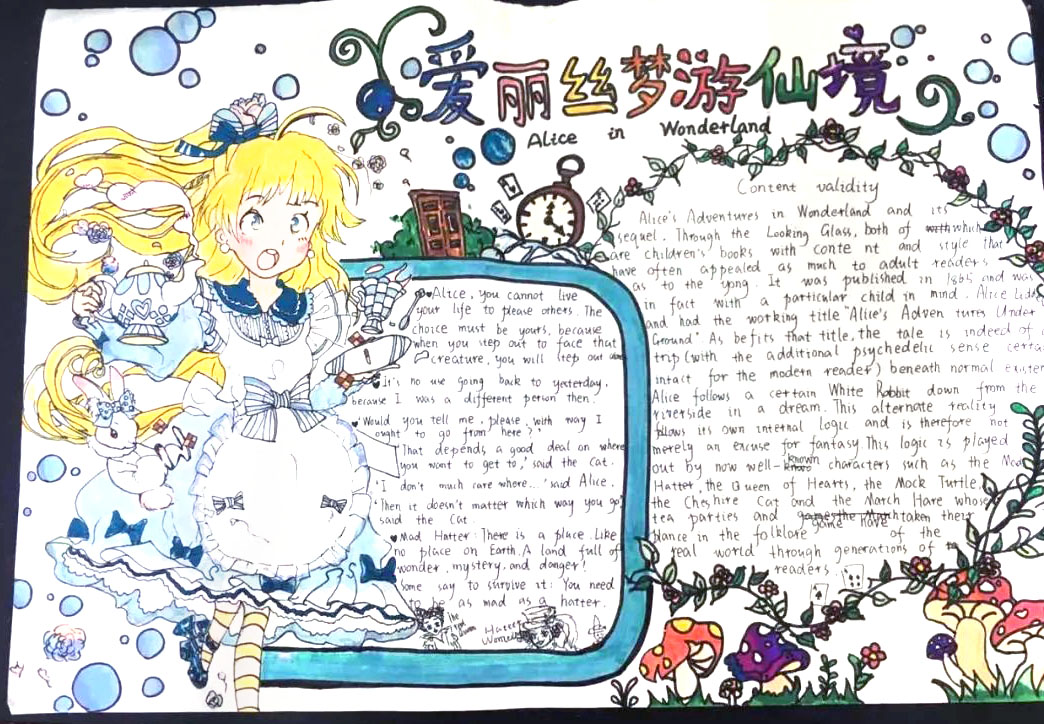 爱丽丝梦游仙境
Alice in Wonderland
Alice, you cannot live
your life to please others. The
choice must be yours, because
when you step out to face that
creature, you will step out
It's no use going back to yesterday,
because I was a different person then.
'Would you tell me, please, with way I
ought to go from here?'
'That depends a good deal on where
you want to get to,' said the Cat.
'I don't much care where...' said Alice.
'Then it doesn't matter which way you go,'
said the Cat.
Mad Hatter: There is a place. Like
no place on Earth. A land full of
wonder, mystery, and danger!
Some say to survive it: You need
to be as mad as a hatter.
Content validity
Alice's Adventures in Wonderland and its
sequel, Through the Looking Glass, both of which
are children's books with conte nt and style that
have often appealed as much to adult readers
as to the yong. It was published in 1865 and was
in fact with a particular child in mind. Alice
and had the working title "Alice's Adven tures Under
Ground". As befits that title, the tale is indeed of a
trip (with the additional psychedelic sense
intact for the modern reader) beneath normal
Alice follows a certain White Rabbit down from the
riverside in a dream. This alternate reality
follows its own internal logic and is therefore not
merely an excuse for fantasy. This logic is played
out by now well-known characters such as the Mad
Hatter, the Queen of Hearts, the Mock Turtle,
the Cheshire Cat and the March Hare whose
tea parties and game have taken their
place in the folklore of the
real world through generations of
readers